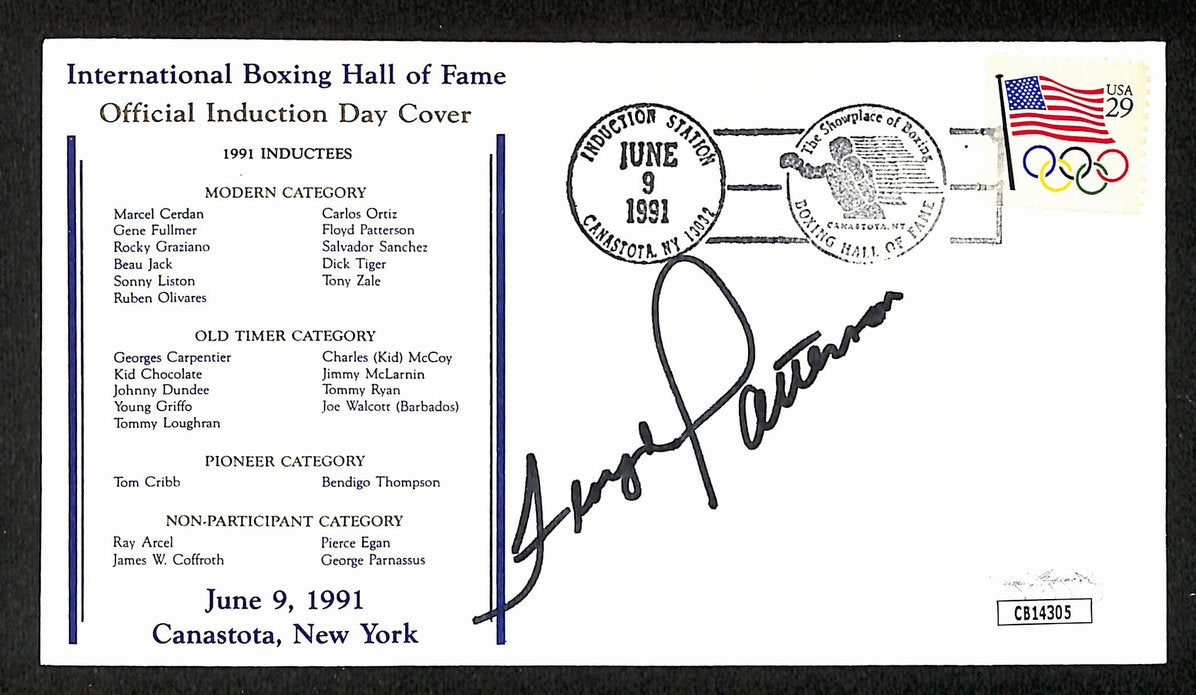 International Boxing Hall of Fame
Official Induction Day Cover
1991 INDUCTEES
MODERN CATEGORY
Marcel Cerdan
Gene Fullmer
Rocky Graziano
Beau Jack
Sonny Liston
Ruben Olivares
Carlos Ortiz
Floyd Patterson
Salvador Sanchez
Dick Tiger
Tony Zale
OLD TIMER CATEGORY
Georges Carpentier
Kid Chocolate
Johnny Dundee
Young Griffo
Tommy Loughran
Charles (Kid) McCoy
Jimmy McLarnin
Tommy Ryan
Joe Walcott (Barbados)
PIONEER CATEGORY
Tom Cribb
Bendigo Thompson
NON-PARTICIPANT CATEGORY
Ray Arcel
James W. Coffroth
Pierce Egan
George Parnassus
June 9, 1991
Canastota, New York
INDUCTION STATION
JUNE
9
1991
CANASTOTA, NY 13032
The Showplace of Boxing
CANASTOTA, NY
BOXING HALL OF FAME
USA
29
Floyd Patterson
CB14305